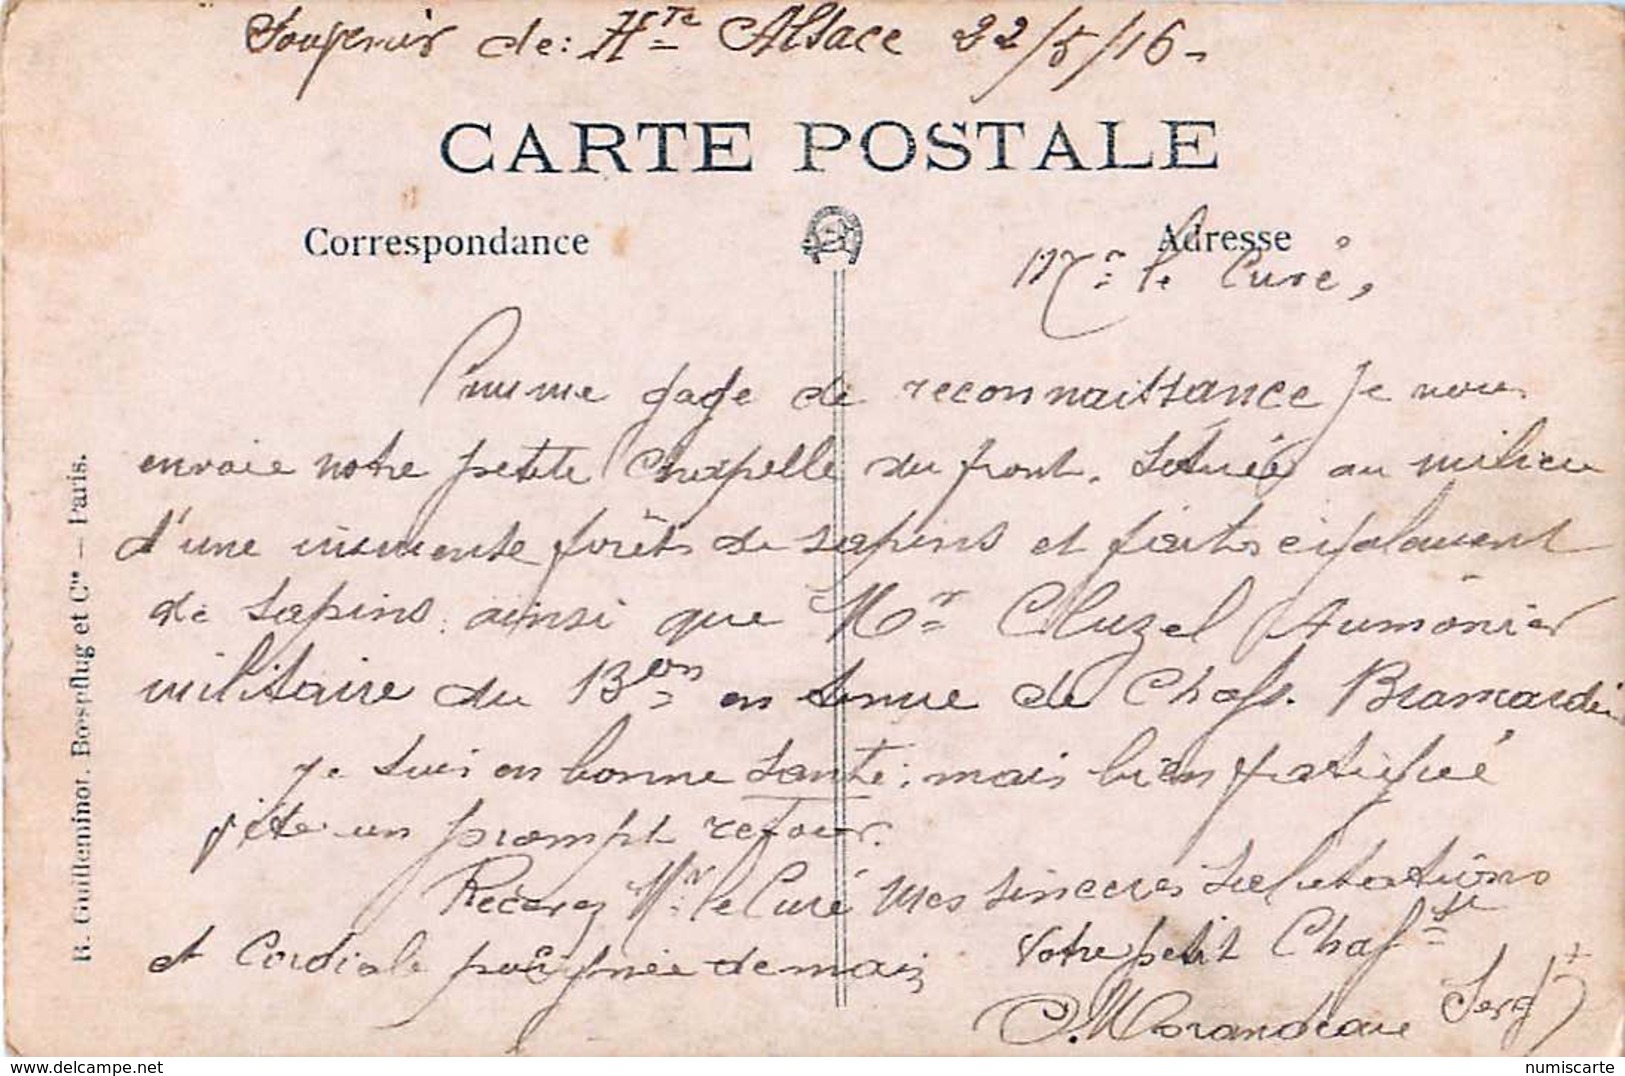 Souvenir de: Hte Alsace 22/5/16-
CARTE POSTALE
Correspondance
Adresse
Mr le Curé,
Comme gage de reconnaissance je vous
envoie notre petite Chapelle du front. située au milieu
d'une immense forêts de sapins et faites également
de sapins. ainsi que Mr Cluzel Aumônier
militaire du 13eon en tenue de Chass.
je suis en bonne santé, mais bien fatigué
un prompt retour.
Recevez Mr le Curé mes sinceres salutations
et Cordiale poignée de main
Votre petit Chass
Sergt
R. Guilleminot, Bœspflug et Cie — Paris.
numiscarte